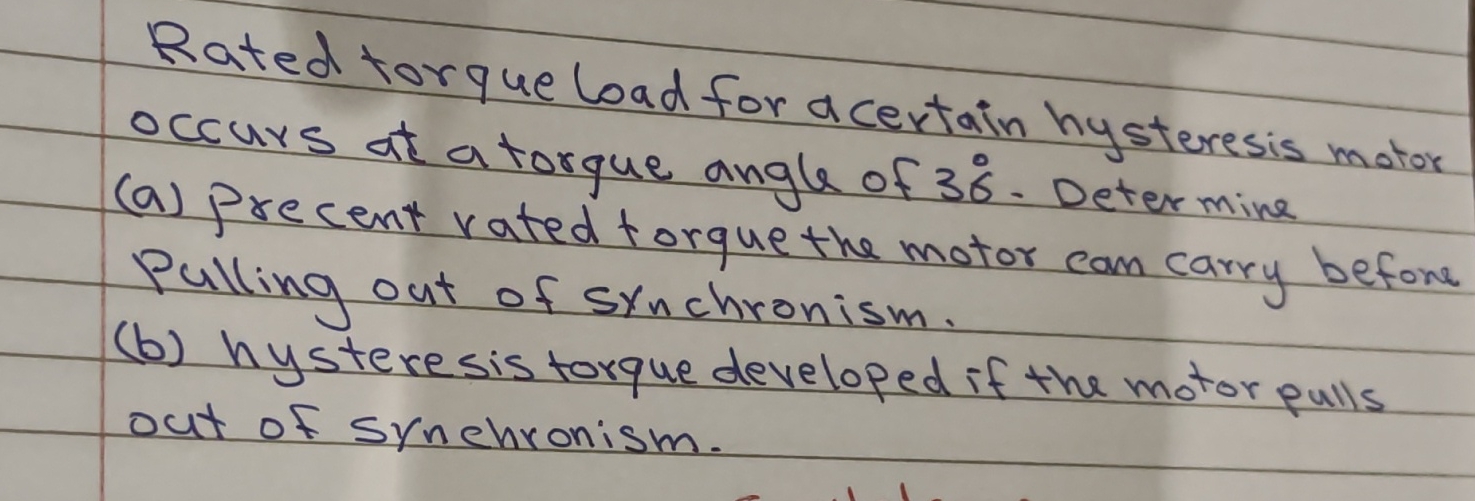 Rated torque load for a certain hysteresis motor
occurs at a torque angle of 36°. Determine
(a) precent rated torque the motor can carry before
Pulling out of synchronism.
(b) hysteresis torque developed if the motor pulls
out of synchronism.